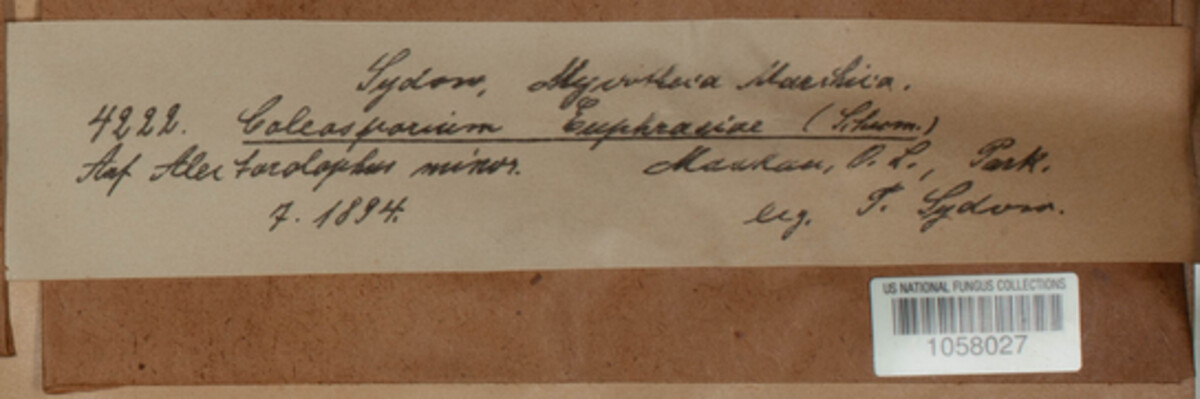 Sydow, Mycotheca Marchica.
4222. Coleosporium Euphrasiae (Schum.)
Auf Alectorolophus minor. Muskau, O. L., Park.
7. 1894. leg. P. Sydow.
US NATIONAL FUNGUS COLLECTIONS
1058027